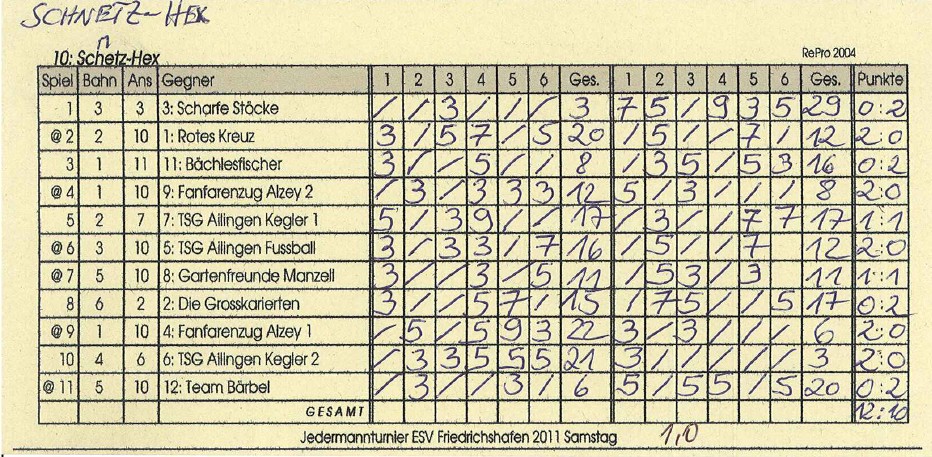 SCHNETZ-HEX
n
10: Schetz-Hex RePro 2004
Spiel Bahn Ans Gegner 1 2 3 4 5 6 Ges. 1 2 3 4 5 6 Ges. Punkte
1 3 3 3: Scharfe Stöcke / / 3 / / / 3 7 5 / 9 3 5 29 0:2
@ 2 2 10 1: Rotes Kreuz 3 / 5 7 / 5 20 / 5 / / 7 / 12 2:0
3 1 11 11: Bächlesfischer 3 / / 5 / / 8 / 3 5 / 5 3 16 0:2
@ 4 1 10 9: Fanfarenzug Alzey 2 / 3 / 3 3 3 12 5 / 3 / / / 8 2:0
5 2 7 7: TSG Ailingen Kegler 1 5 / 3 9 / / 17 / 3 / / 7 7 17 1:1
@ 6 3 10 5: TSG Ailingen Fussball 3 / 3 3 / 7 16 / 5 / / 7 12 2:0
@ 7 5 10 8: Gartenfreunde Manzell 3 / / 3 / 5 11 / 5 3 / 3 11 1:1
8 6 2 2: Die Grosskarierten 3 / / 5 7 / 15 / 7 5 / / 5 17 0:2
@ 9 1 10 4: Fanfarenzug Alzey 1 / 5 / 5 9 3 22 3 / 3 / / / 6 2:0
10 4 6 6: TSG Ailingen Kegler 2 / 3 3 5 5 5 21 3 / / / / / 3 2:0
@ 11 5 10 12: Team Bärbel / 3 / / 3 / 6 5 / 5 5 / 5 20 0:2
GESAMT 12:10
Jedermannturnier ESV Friedrichshafen 2011 Samstag 1,0